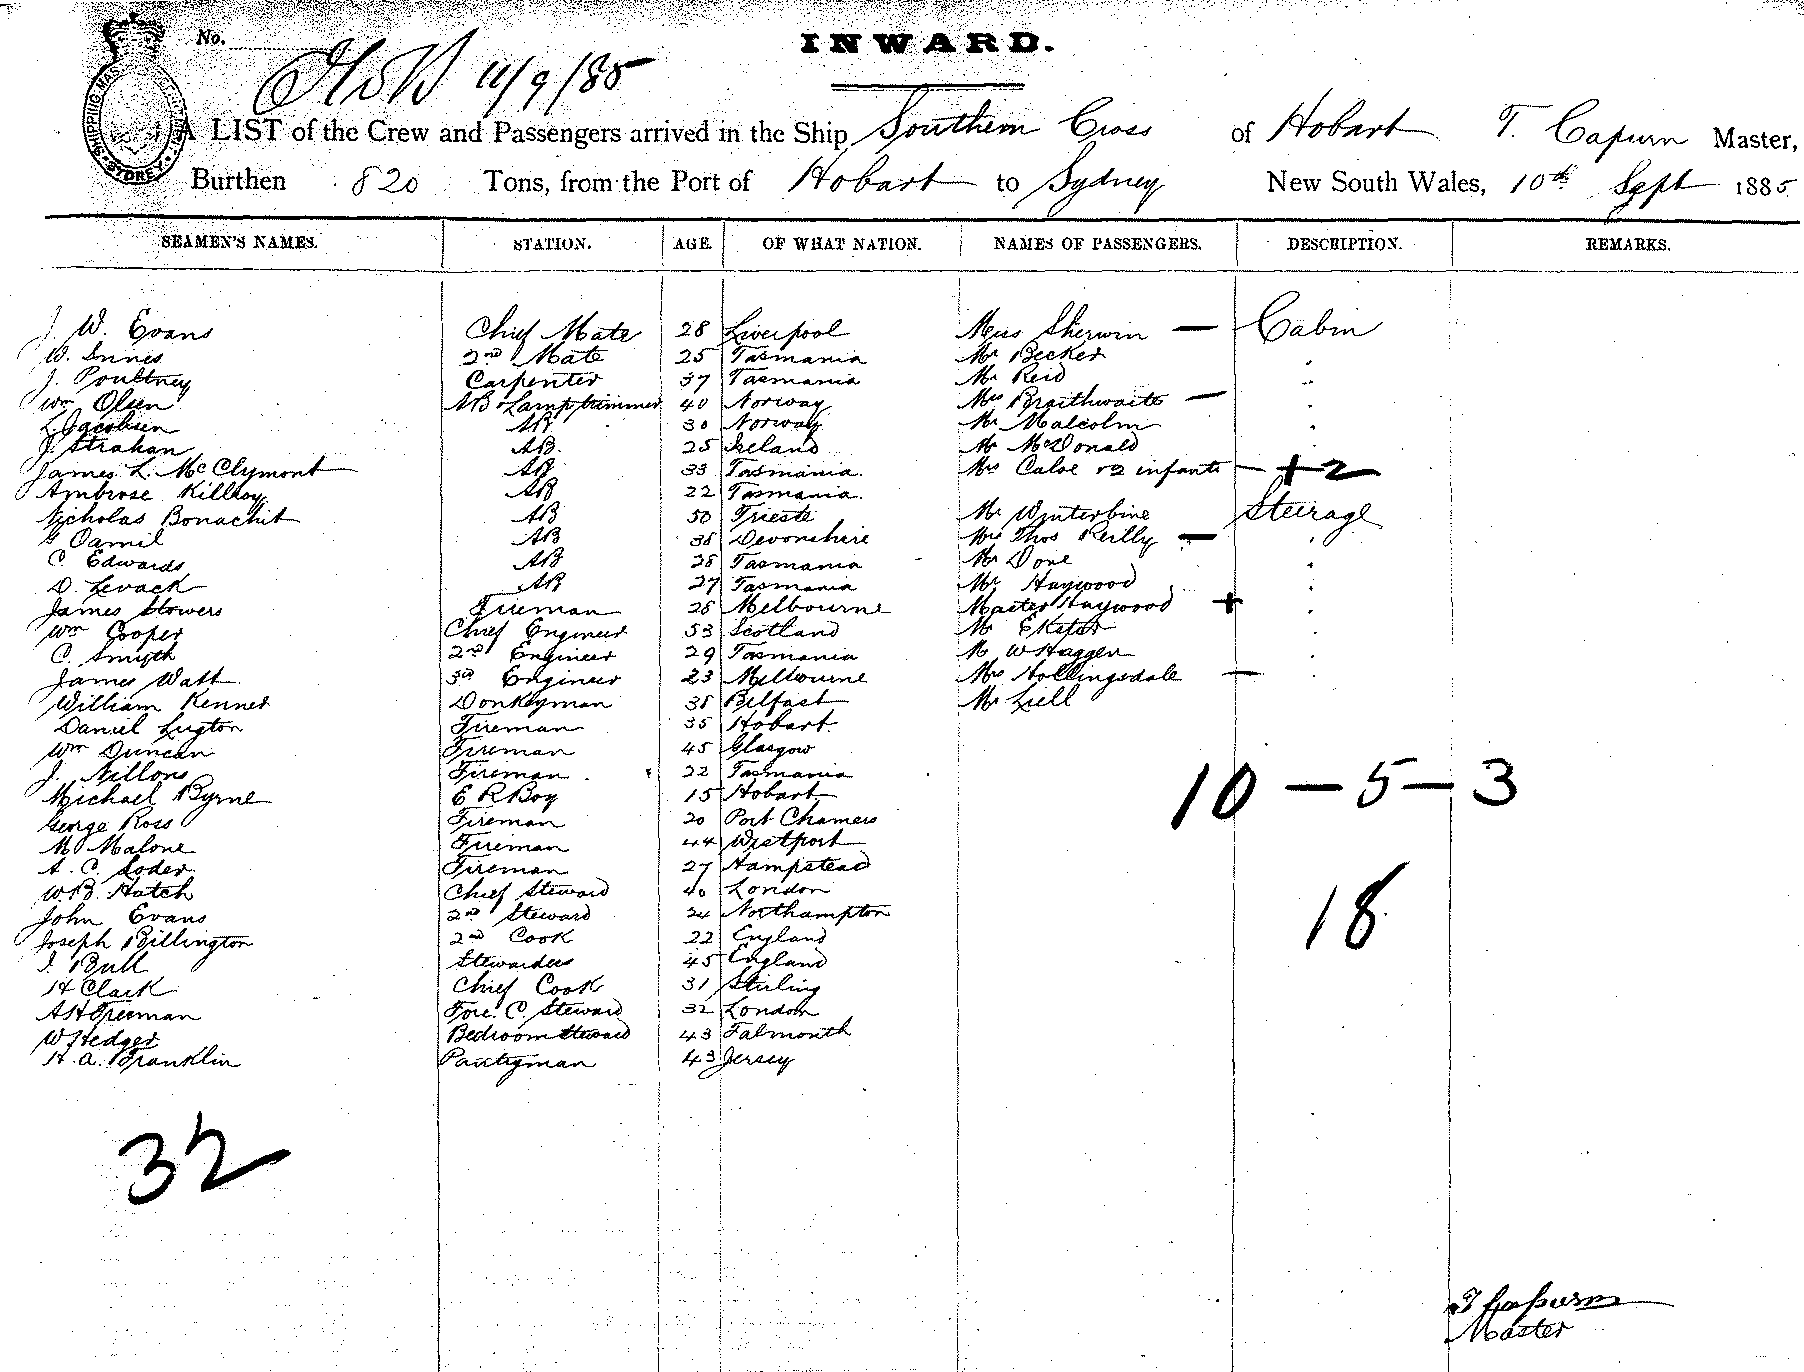 No.
INWARD.
11/9/85
A LIST of the Crew and Passengers arrived in the Ship Southern Cross of Hobart T. Capurn Master,
Burthen 820 Tons, from the Port of Hobart to Sydney New South Wales, 10th Sept 1885
SEAMEN'S NAMES. STATION. AGE. OF WHAT NATION. NAMES OF PASSENGERS. DESCRIPTION. REMARKS.
J. W. Evans Chief Mate 28 Liverpool Miss Sherwin — Cabin
W. Innes 2nd Mate 25 Tasmania Mr Becker "
J. Poultney Carpenter 37 Tasmania Mr Reid "
Wm Olsen AB & Lamptrimmer 40 Norway Mrs Braithwaite — "
L. Jacobsen AB 30 Norway Mr Malcolm "
J. Strahan AB 25 Ireland Mr McDonald "
James L. McClymont AB 33 Tasmania Mrs Caloe & 2 infants — + 2
Ambrose Killhoy AB 22 Tasmania Mr Winterbine Steerage
Nicholas Bonachit AB 50 Trieste Mrs Thos Reilly — "
Damil AB Devonshire Mr Done "
C. Edwards AB 28 Tasmania Mr Haywood "
D. Levack AB 27 Tasmania Master Haywood + "
James Stowers Fireman 28 Melbourne Mr "
Wm Cooper Chief Engineer 53 Scotland Mr W Haggen "
C. Smyth 2nd Engineer 29 Tasmania Mrs Hollingsdale — "
James Watt 3rd Engineer 23 Melbourne Mr Liell
William Kenner Donkeyman 38 Belfast
Daniel Lugton Fireman 35 Hobart
Wm Duncan Fireman 45 Glasgow
J. Nillons Fireman 22 Tasmania
Michael Byrne E R Boy 15 Hobart
10 — 5 — 3
George Ross Fireman 20 Port Chamers
M Malone Fireman 44 Westport
A. C. Soder Fireman 27 Hampstead
W. B. Hatch Chief Steward 40 London
John Evans 2nd Steward 24 Northampton
18
Joseph Billington 2nd Cook 22 England
J. Bull Stewardess 45 England
H Clark Chief Cook 31 Stirling
A H Freeman Fore. C. Steward 32 London
W Hedger Bedroom Steward 43 Falmonth
H. A. Franklin Pantryman 43 Jersey
32
T Capurn
Master